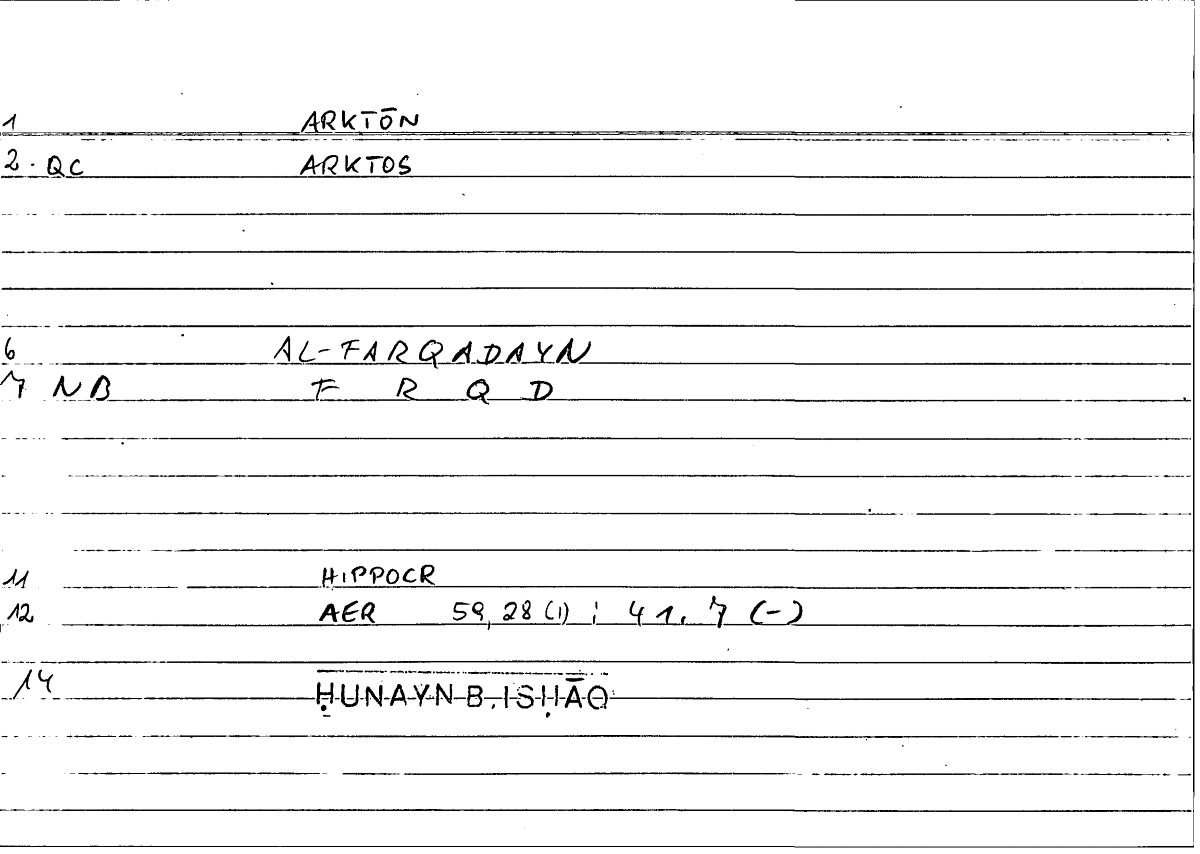 1 ARKTŌN
2. QC ARKTOS
6 AL-FARQADAYN
7 NB F R Q D
11 HIPPOCR
12 AER 59,28 (1) ; 41. 7 (-)
14 ḤUNAYN B. ISḤĀQ